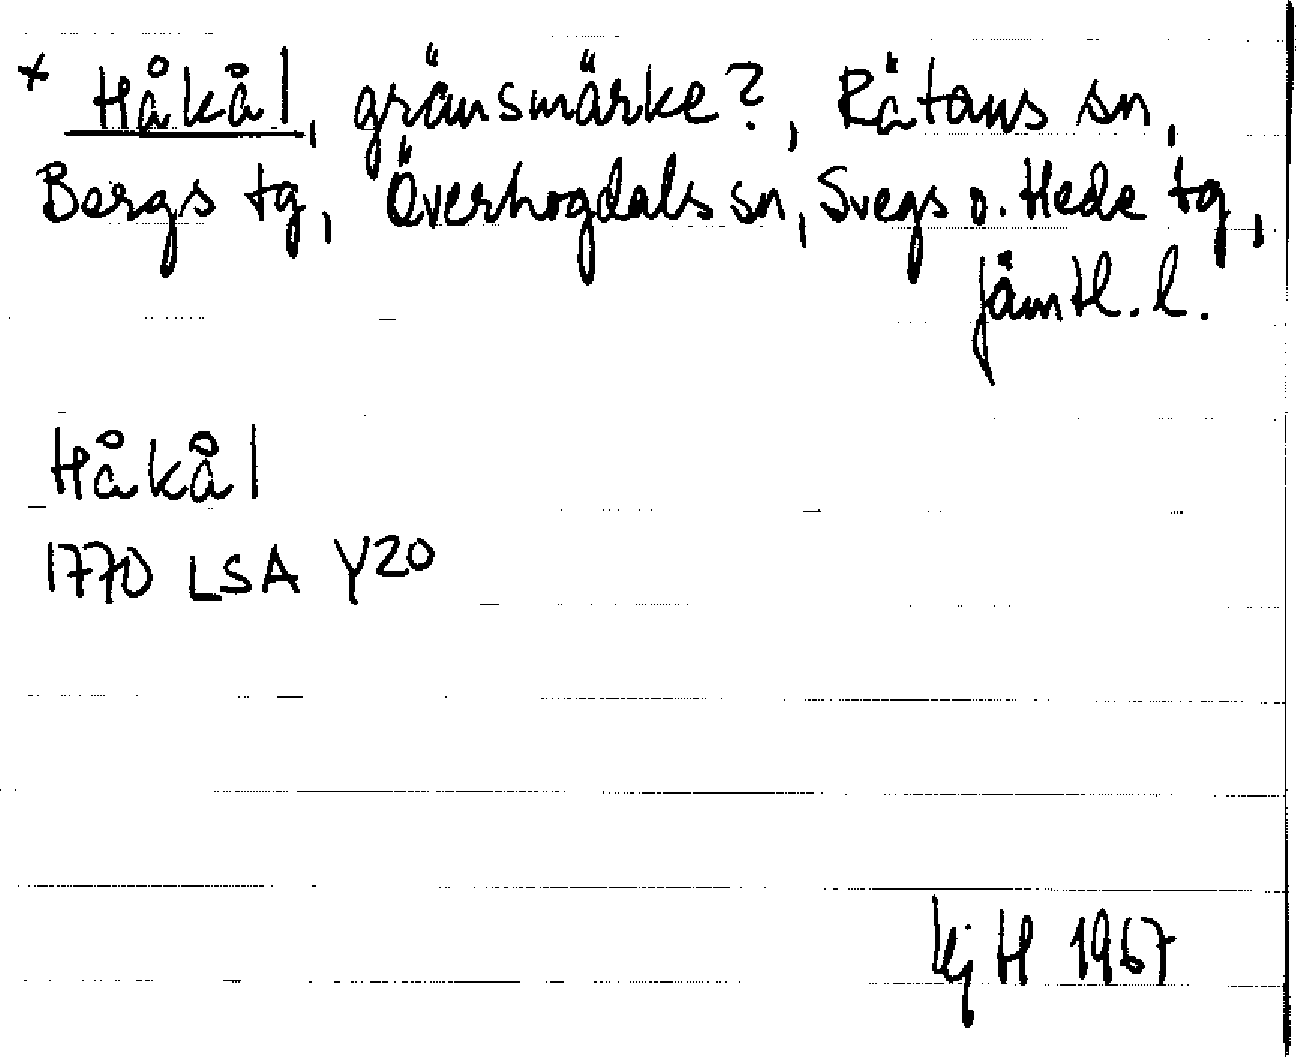 + Håkål, gränsmärke?, Rätans sn,
Bergs tg, Överhogdals sn, Svegs o. Hede tg,
Jämtl. l.
Håkål
1770 LSA Y20
Kj H 1967